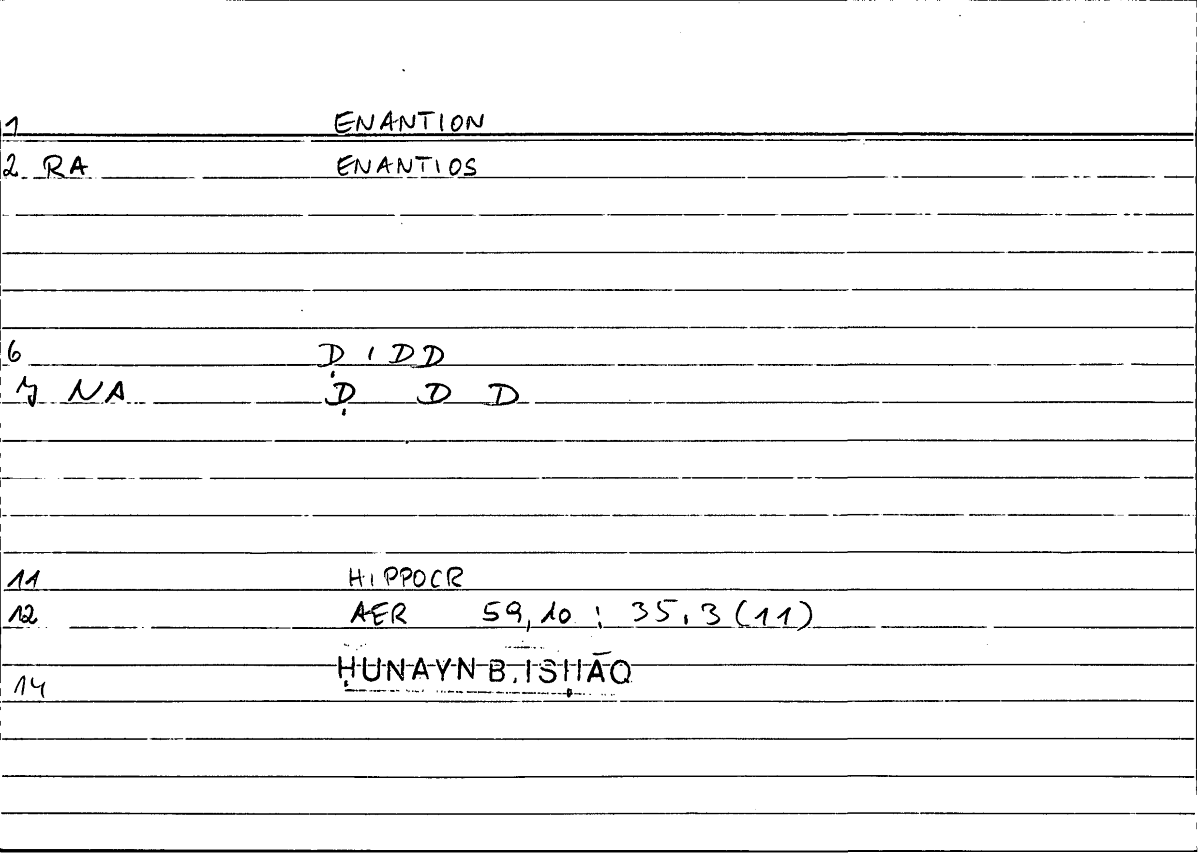 1 ENANTION
2 RA ENANTIOS
6 ḌIDD
7 NA Ḍ D D
11 HIPPOCR
12 AER 59,10 : 35,3 (11)
ḤUNAYN B. ISḤĀQ
14